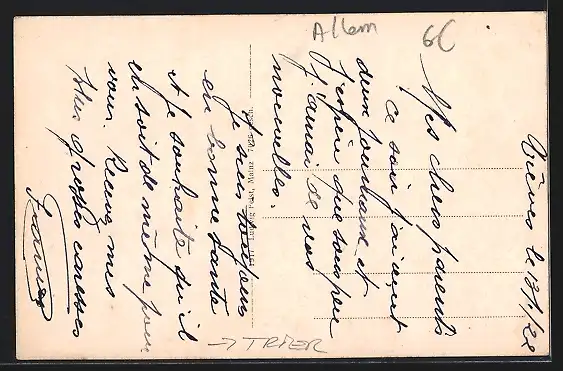 Allem
6C
Trèves le 13/1/22
Mes chers parents
ce soir j'ai écrit
deux journaux et
j'espère que sous peu
j'aurai de vos
nouvelles.
Je suis toujours
en bonne santé
et je souhaite qu'il
en soit de même pour
vous. Recevez mes
plus grosses caresses
→ TRIER